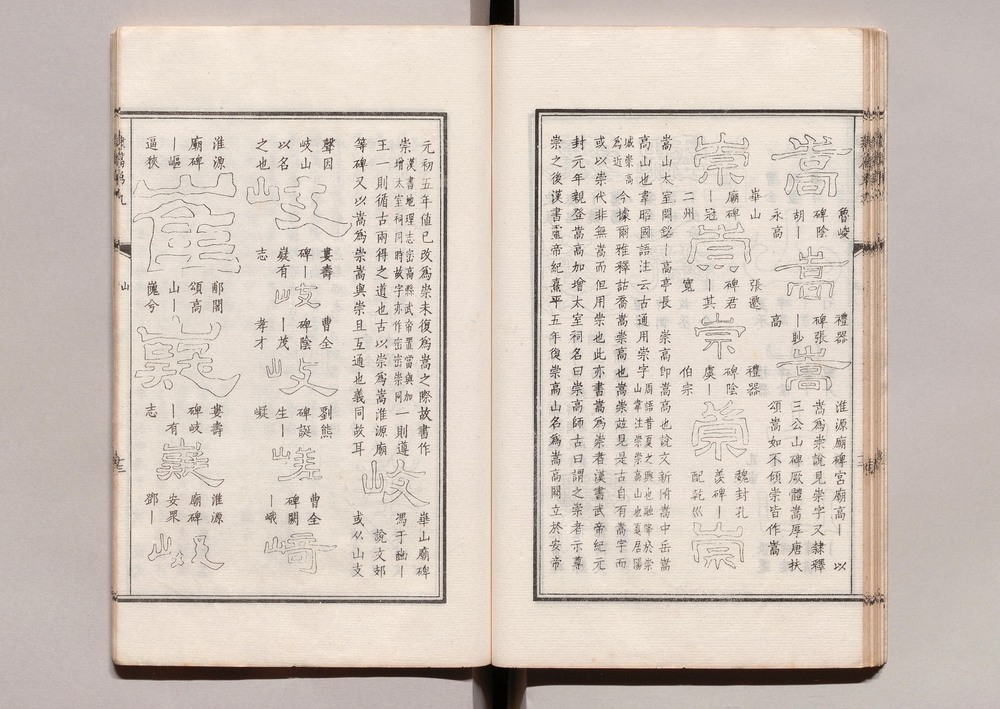 嵩
魯峻
碑陰
胡｜
永高
嵩
禮器
碑張
｜耖
高
嵩
淮源廟碑宮廟高｜以
嵩為崇說見崇字又隸釋
三公山碑厥體嵩厚唐扶
頌嵩如不傾崇皆作嵩
崇
華山
廟碑
｜冠
二州
崇
張遷
碑君
｜其
寬
崇
禮器
碑陰
虞｜
伯宗
崇
魏封孔
羨碑｜
配乾巛
崇
嵩山太室闕銘｜高亭長
崇高即嵩高也說文新附嵩中岳嵩
高山也韋昭國語注云古通用崇字
周語昔夏之興也融降於崇
山韋注崇崇高山也夏居陽
城崇高
為近
今據爾雅釋詁喬嵩崇高也嵩崇竝見是古自有嵩字而
或以崇代非無嵩而但用崇也此亦書嵩為崇者漢書武帝紀元
封元年親登嵩高加增太室祠名曰崇高師古曰謂之崇者示尊
崇之後漢書靈帝紀熹平五年復崇高山名為嵩高闕立於安帝
元初五年値已改為崇未復為嵩之際故書作
崇
漢書地理志崈高縣武帝置當與加
增太室祠同時故字亦作崈崈崇同
一則遵
王一則循古兩得之道也古以崇為嵩淮源廟
等碑又以嵩為崇嵩與崇且互通也義同故耳
岐
華山廟碑
馮于豳｜
說文郊
或从山支
聲因
岐山
以名
之也
岐
婁壽
碑｜
嶷有
志
岐
曹全
碑陰
｜茂
孝才
岐
劉熊
碑誕
生｜
嶷
嵯
曹全
碑闕
｜峨
崎
淮源
廟碑
｜嶇
逼狹
崔
郙閣
頌高
山｜
巍兮
嶷
婁壽
碑岐
｜有
志
嶷
淮源
廟碑
安眾
鄧｜
山